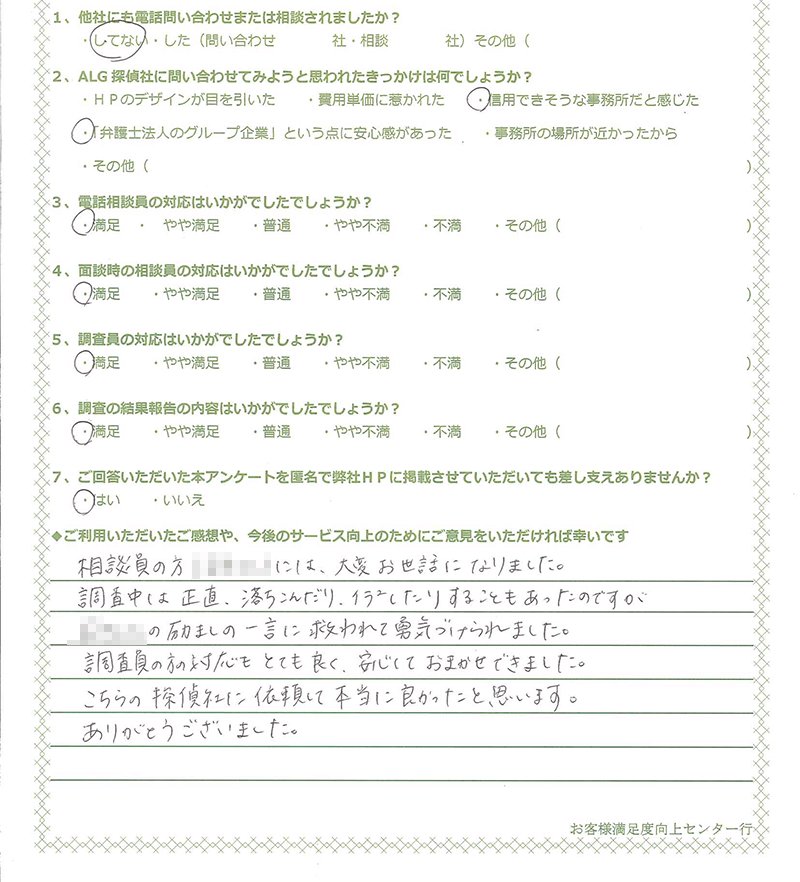 1、他社にも電話問い合わせまたは相談されましたか？
・してない・した（問い合わせ　　　社・相談　　　社）その他（
2、ALG探偵社に問い合わせてみようと思われたきっかけは何でしょうか？
・ＨＰのデザインが目を引いた　・費用単価に惹かれた　・信用できそうな事務所だと感じた
・「弁護士法人のグループ企業」という点に安心感があった　・事務所の場所が近かったから
・その他（　　　）
3、電話相談員の対応はいかがでしたでしょうか？
・満足　・　やや満足　・普通　・やや不満　・不満　・その他（　　　）
4、面談時の相談員の対応はいかがでしたでしょうか？
・満足　・やや満足　・普通　・やや不満　・不満　・その他（　　　）
5、調査員の対応はいかがでしたでしょうか？
・満足　・やや満足　・普通　・やや不満　・不満　・その他（　　　）
6、調査の結果報告の内容はいかがでしたでしょうか？
・満足　・やや満足　・普通　・やや不満　・不満　・その他（　　　）
7、ご回答いただいた本アンケートを匿名で弊社ＨＰに掲載させていただいても差し支えありませんか？
・はい　・いいえ
◆ご利用いただいたご感想や、今後のサービス向上のためにご意見をいただければ幸いです
相談員の方　には、大変お世話になりました。
調査中は正直、落ちこんだり、イライラしたりすることもあったのですが
の励ましの一言に救われて勇気づけられました。
調査員の方の対応もとても良く、安心しておまかせできました。
こちらの探偵社に依頼して本当に良かったと思います。
ありがとうございました。
お客様満足度向上センター行